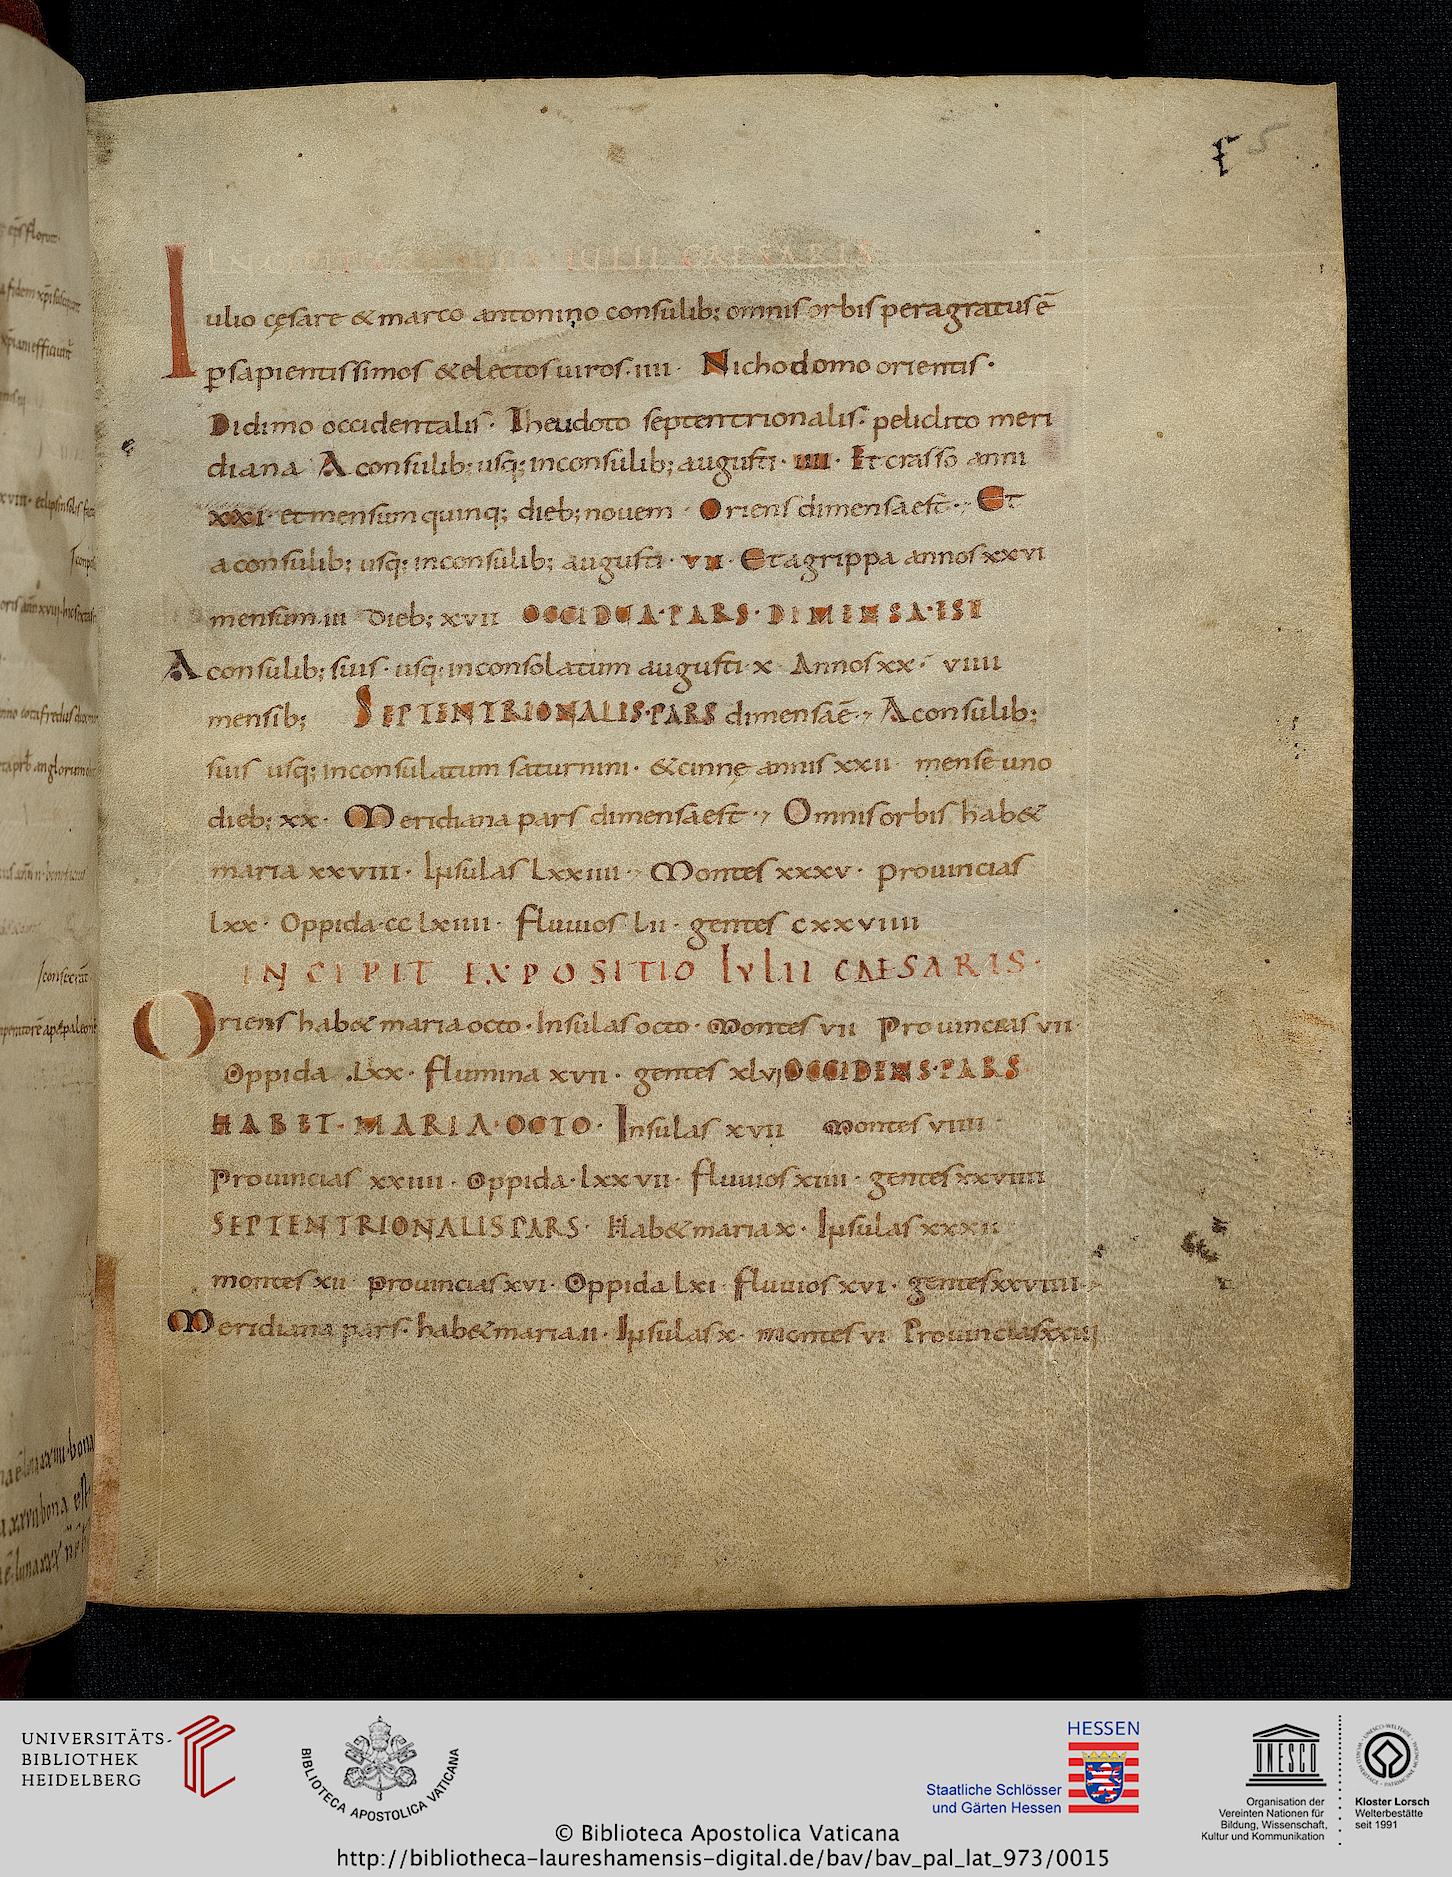 5
INCIPIT IULII CAESARIS
Iulio cęsare & marco antonino consulib; omnis orbis peragratus ē
p sapientissimos & electos uiros. iiii. Nichodomo orientis.
Didimo occidentalis. Theudoto septentrionalis. pelidito meri
diana A consulib; usq; inconsulib; augusti. iiii. Et crasso anni
xxi. et mensum quinq; dieb; nouem. Oriens dimensa est. Et
a consulib; usq; inconsulib; augusti. vii. Et agrippa annos xxvi
mensum. iii dieb; xvii OCCIDUA. PARS. DIMENSA. EST
A consulib; suis. usq; inconsolatum augusti. x. Annos xx. viiii
mensib; SEPTENTRIONALIS. PARS dimensa ē. A consulib;
suis usq; inconsulatum saturnini. & cinnę annis xxii. mense uno
dieb; xx. Meridiana pars dimensa est. Omnis orbis hab&
maria xxviii. Insulas Lxxiiii. Montes xxxv. prouincias
lxx. Oppida. cc lxiiii. Fluuios Lii. gentes cxxviiii
INCIPIT EXPOSITIO IVLII CAESARIS.
Oriens hab& maria octo. Insulas octo. Montes vii Prouincias vii.
Oppida .Lxx. flumina xvii. gentes xlvj OCCIDENS. PARS
HABET. MARIA. OCTO. Insulas xvii montes viiii
Prouincias xxiiii. Oppida. lxxvii. fluuios xiiii. gentes xxviiii
SEPTENTRIONALIS PARS. Hab& maria x. Insulas xxxii
montes xii prouincias xvi. Oppida lxi. fluuios xvi. gentes xxviiii.
Meridiana pars. hab& maria ii. Insulas x. montes vi Prouincias xxiij
UNIVERSITÄTS-
BIBLIOTHEK
HEIDELBERG
BIBLIOTECA APOSTOLICA VATICANA
HESSEN
Staatliche Schlösser
und Gärten Hessen
UNESCO
Organisation der
Vereinten Nationen für
Bildung, Wissenschaft,
Kultur und Kommunikation
Kloster Lorsch
Welterbestätte
seit 1991
© Biblioteca Apostolica Vaticana
http://bibliotheca-laureshamensis-digital.de/bav/bav_pal_lat_973/0015